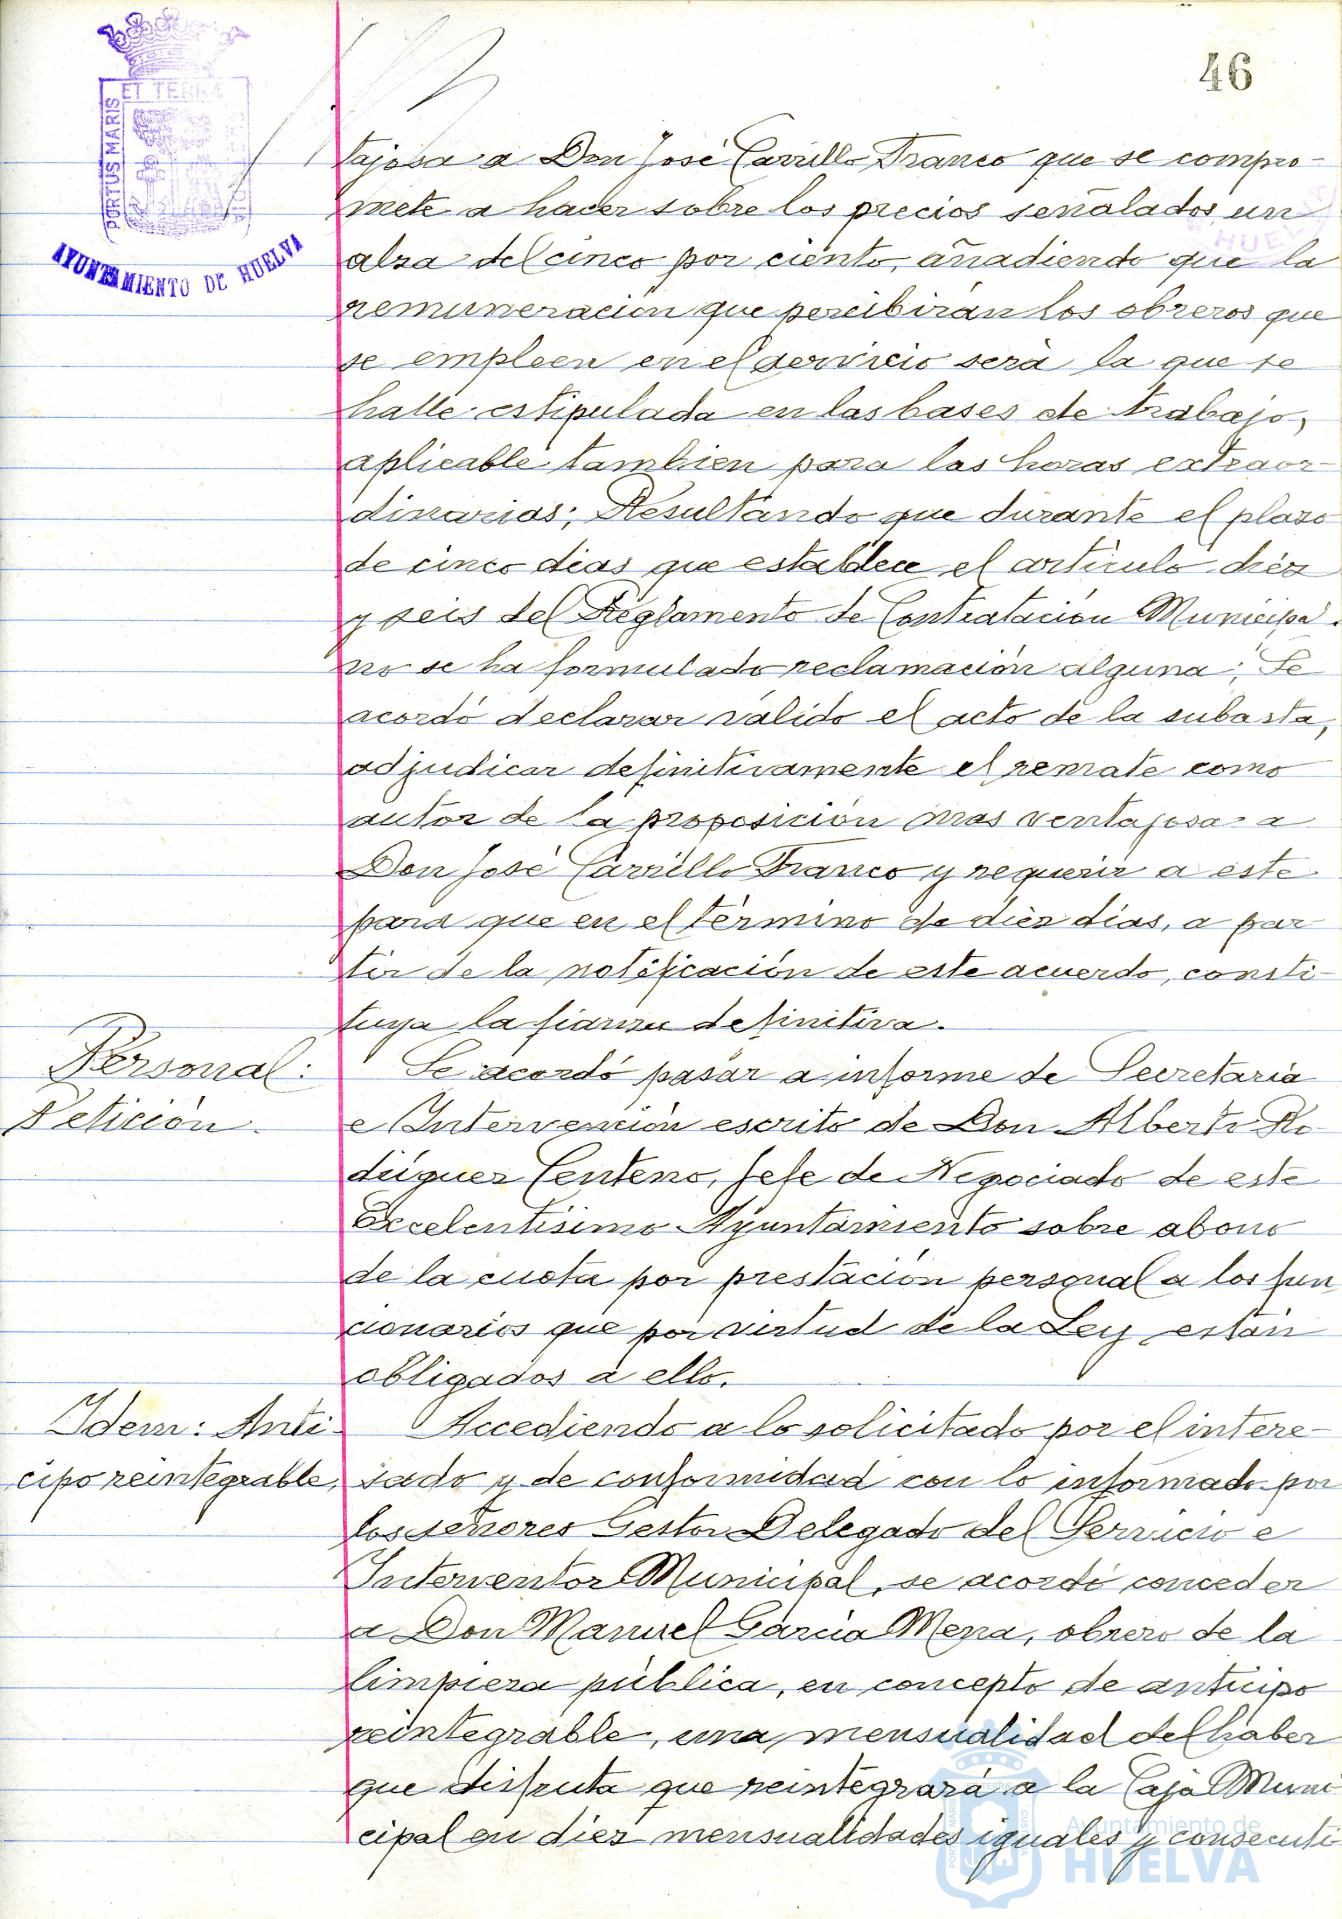 46
PORTUS MARIS
ET TERRÆ
CUSTODIA
AYUNTAMIENTO DE HUELVA
HUELVA
tajosa a Don José Carrillo Franco que se compro-
mete a hacer sobre los precios señalados un
alza del cinco por ciento, añadiendo que la
remuneración que percibirán los obreros que
se empleen en el servicio será la que se
halle estipulada en las bases de trabajo,
aplicable tambien para las horas extraor-
dinarias; Resultando que durante el plazo
de cinco dias que establece el artículo diéz
y seis del Reglamento de Contratación Municipal
no se ha formulado reclamación alguna; Se
acordó declarar válido el acto de la subasta,
adjudicar definitivamente el remate como
autor de la proposición mas ventajosa a
Don José Carrillo Franco y requerir a este
para que en el término de diéz días, a par-
tir de la notificación de este acuerdo, consti-
tuya la fianza definitiva.
Personal:
Petición.
Se acordó pasar a informe de Secretaría
e Intervención escrito de Don Alberto Ro-
dríguez Centeno, Jefe de Negociado de este
Excelentísimo Ayuntamiento sobre abono
de la cuota por prestación personal a los fun
cionarios que por virtud de la Ley están
obligados a ello.
Idem: Anti-
cipo reintegrable,
Accediendo a lo solicitado por el intere-
sado y de conformidad con lo informado por
los señores Gestor Delegado del Servicio e
Interventor Municipal, se acordó conceder
a Don Manuel García Mena, obrero de la
limpieza pública, en concepto de anticipo
reintegrable, una mensualidad del haber
que disfruta que reintegrará a la Caja Muni-
cipal en diéz mensualidades iguales y consecuti
Ayuntamiento de
HUELVA